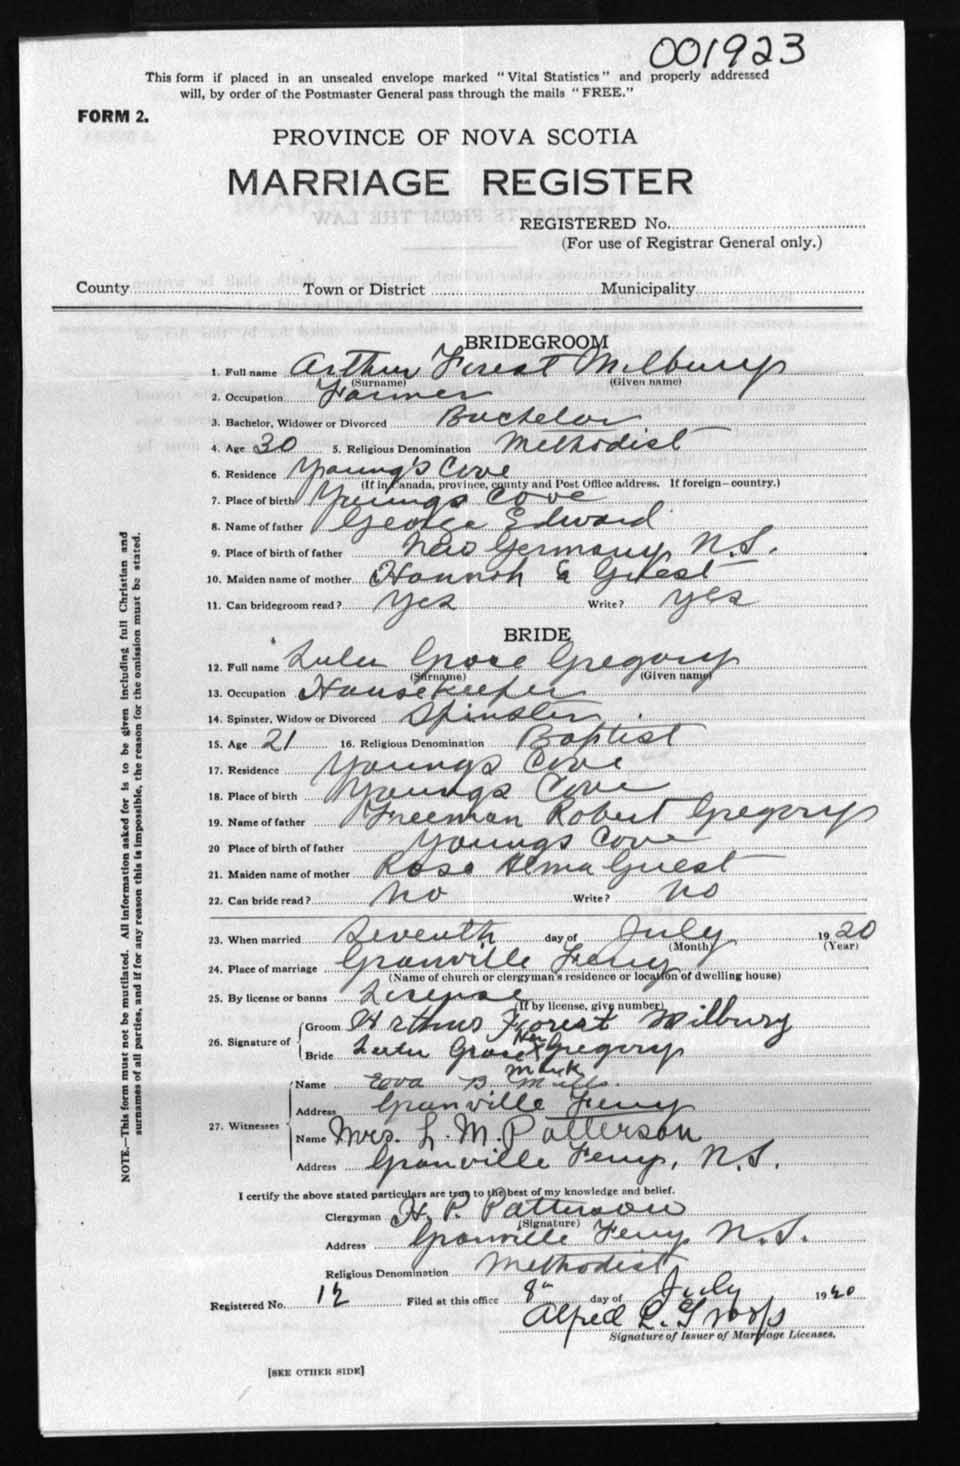 001923
This form if placed in an unsealed envelope marked "Vital Statistics" and properly addressed
will, by order of the Postmaster General pass through the mails "FREE."
FORM 2.
PROVINCE OF NOVA SCOTIA
MARRIAGE REGISTER
REGISTERED No.
(For use of Registrar General only.)
County Town or District Municipality
BRIDEGROOM
1. Full name Arthur Forest Milbury
(Surname) (Given name)
2. Occupation Farmer
3. Bachelor, Widower or Divorced Bachelor
4. Age 30 5. Religious Denomination Methodist
6. Residence Young's Cove
(If in Canada, province, county and Post Office address. If foreign—country.)
7. Place of birth Youngs Cove
8. Name of father George Edward
9. Place of birth of father New Germany N.S.
10. Maiden name of mother Hannah E Guest
11. Can bridegroom read? Yes Write? Yes
BRIDE
12. Full name Lulu Grace Gregory
(Surname) (Given name)
13. Occupation Housekeeper
14. Spinster, Widow or Divorced Spinster
15. Age 21 16. Religious Denomination Baptist
17. Residence Youngs Cove
18. Place of birth Youngs Cove
19. Name of father Freeman Robert Gregory
20 Place of birth of father Youngs Cove
21. Maiden name of mother Rose Alma Guest
22. Can bride read? No Write? No
23. When married Seventh day of July 1920
(Month) (Year)
24. Place of marriage Granville Ferry
(Name of church or clergyman's residence or location of dwelling house)
25. By license or banns License
(If by license, give number)
26. Signature of Groom Arthur Forest Milbury
Her
Bride Lulu Grace X Gregory
Mark
27. Witnesses Name B Mills
Address Granville Ferry
Name Mrs. L. M. Patterson
Address Granville Ferry, N.S.
I certify the above stated particulars are true to the best of my knowledge and belief.
Clergyman H. P. Patterson
(Signature)
Address Granville Ferry N.S.
Religious Denomination Methodist
Registered No. 12 Filed at this office day of July 1920
Alfred
Signature of Issuer of Marriage Licenses.
[SEE OTHER SIDE]
NOTE.—This form must not be mutilated. All information asked for is to be given including full Christian and
surnames of all parties, and if for any reason this is impossible, the reason for the omission must be stated.